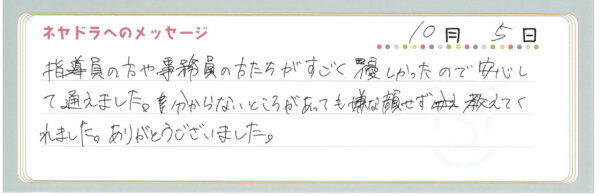 ネヤドラへのメッセージ
10月 5日
指導員の方や事務員の方たちがすごく優しかったので安心し
て通えました。自分からないところがあっても嫌な顔せず教えてく
れました。ありがとうございました。